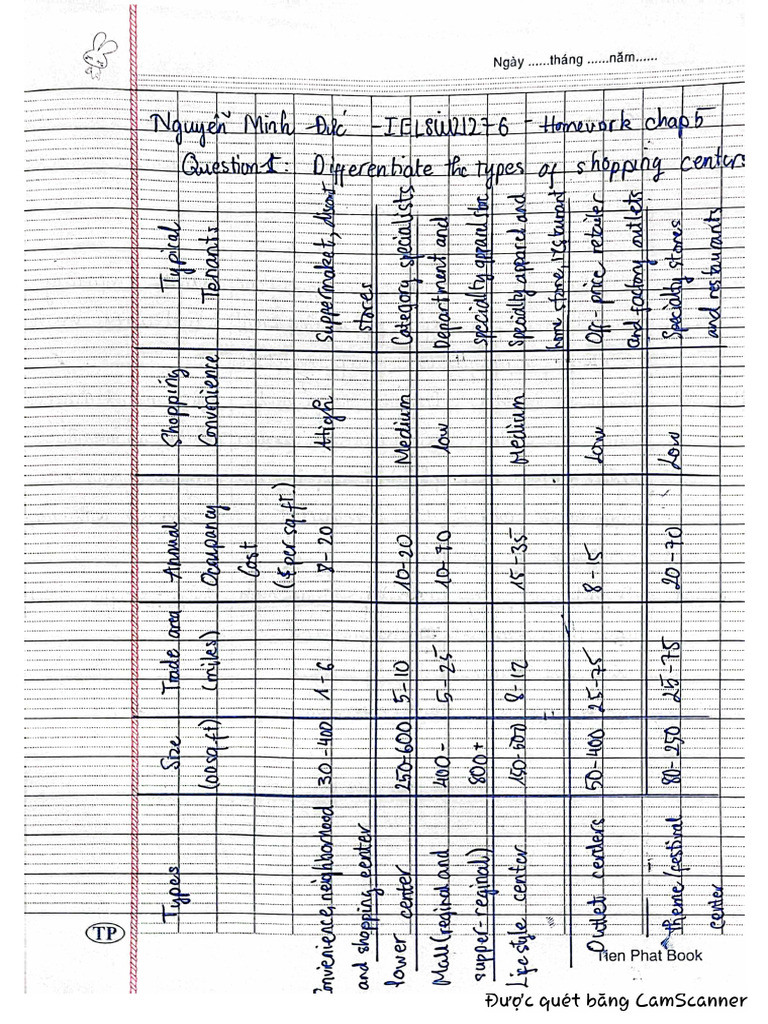 Ngày ......tháng ......năm......
Nguyễn Minh Đức - IELSIU21276 - Homework chap 5
Question 1: Differentiate the types of shopping centers
Types Size Trade area Annual Shopping Typical
(000sq.ft) (miles) Ocupancy Convinience Tenants
Cost
($ per sq.ft.)
Convienience, neighborhood 30-400 1-6 8-20 High Suppermaket, discount
and shopping center stores
Power center 250-600 5-10 10-20 Medium Category specialists
Mall (reginal and 400- 5-25 10-70 Low Department and
supper-reginal) 800+ speciality apparel store
Life style center 150-500 8-12 15-35 Medium Specialty apparel and
home store, restaurant
Outlet centers 50-400 25-75 8-15 Low Off-price retailer
and factory outlets
Theme/festival 80-250 25-75 20-70 Low Specialty stores
center and restaurants
TP
Tien Phat Book
Được quét bằng CamScanner